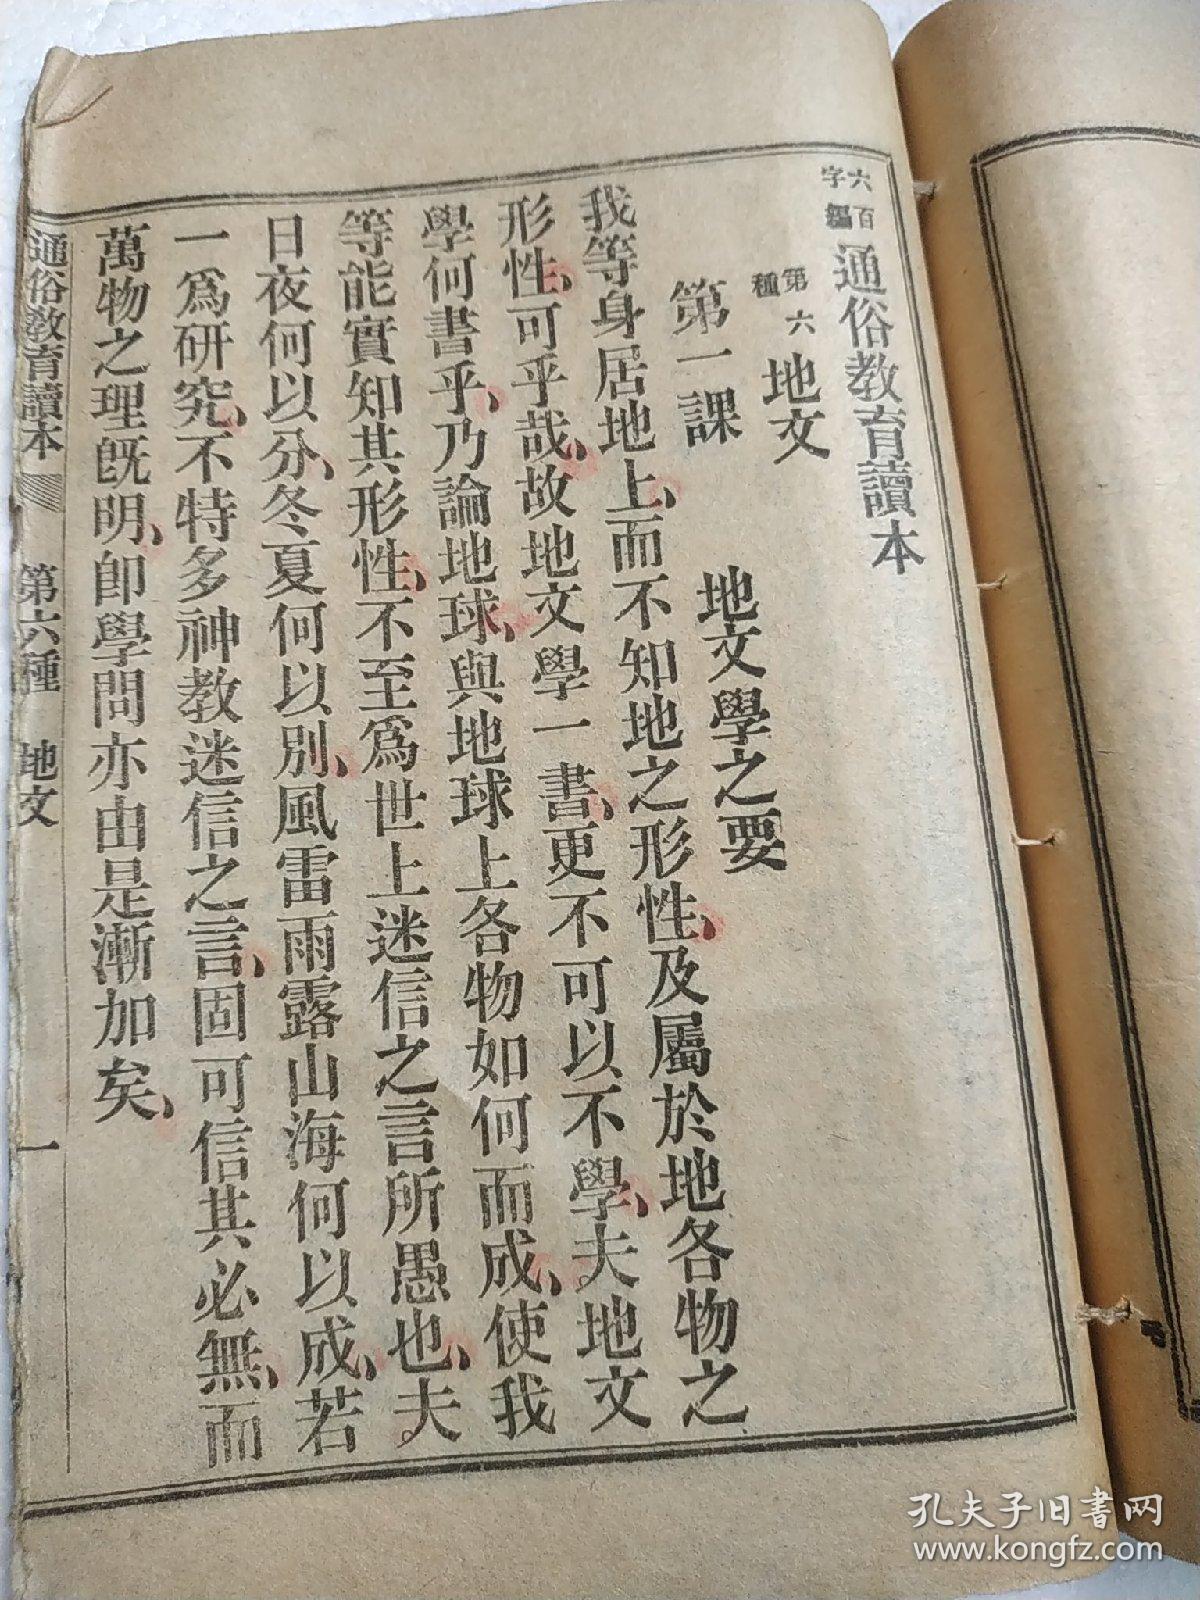 六百字編通俗教育讀本
第六種 地文
第一課 地文學之要
我等身居地上、而不知地之形性、及屬於地各物之
形性、可乎哉、故地文學一書、更不可以不學、夫地文
學何書乎、乃論地球、與地球上各物如何而成、使我
等能實知其形性、不至爲世上迷信之言所愚也、夫
日夜何以分、冬夏何以別、風雷雨露山海何以成、若
一爲研究、不特多神教迷信之言、固可信其必無、而
萬物之理既明、卽學問亦由是漸加矣、
通俗教育讀本 第六種 地文 一
孔夫子旧书网
www.kongfz.com